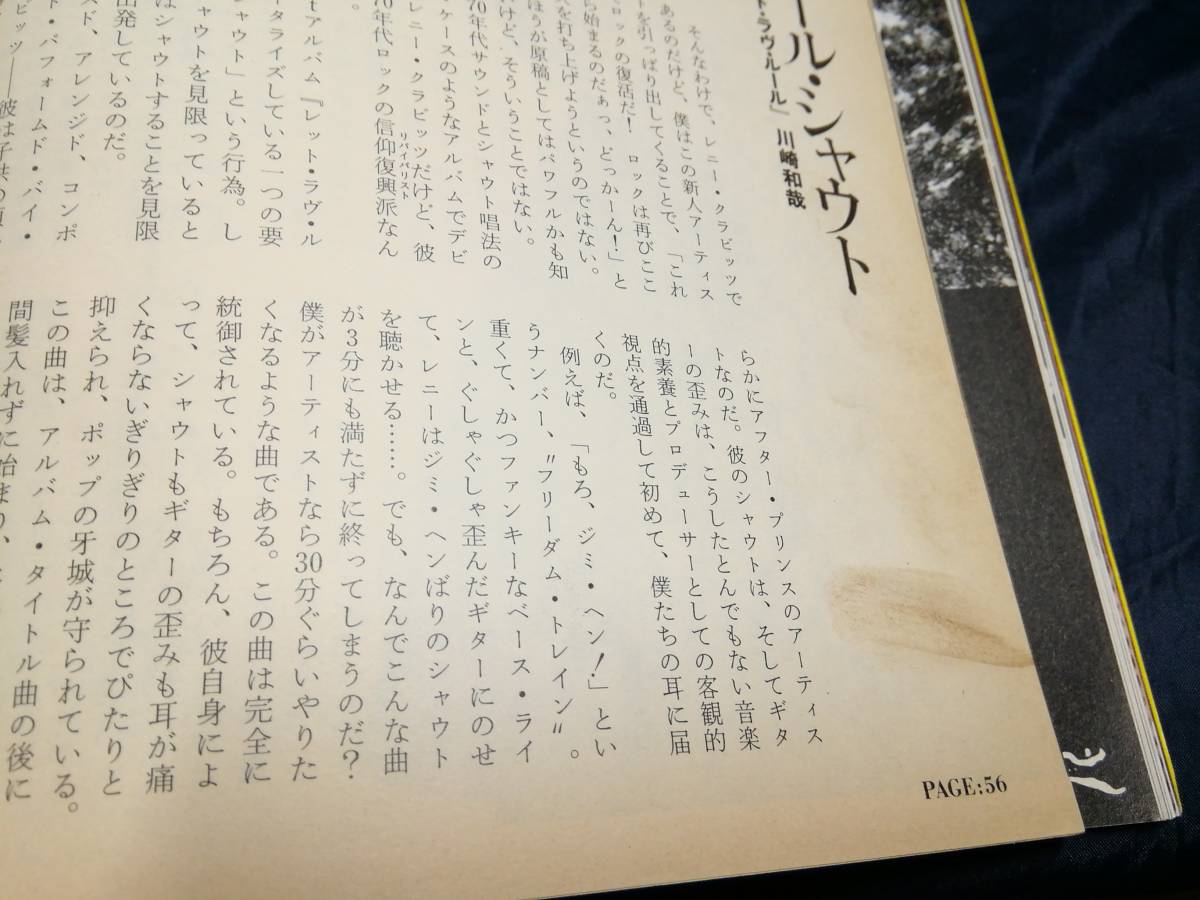 ールシャウト
ト・ラヴ・ルール』 川崎和哉
そんなわけで、レニー・クラビッツで
あるのだけど、僕はこの新人アーティス
トを引っぱり出してくることで、「これ
ロックの復活だ！ ロックは再びここ
ら始まるのだぁっ、どっかーん！」と
を打ち上げようというのではない。
ほうが原稿としてはパワフルかも知
けど、そういうことではない。
70年代サウンドとシャウト唱法の
ケースのようなアルバムでデビ
レニー・クラビッツだけど、彼
70年代ロックの信仰復興派なん
リバイバリスト
。
tアルバム『レット・ラヴ・ル
ータライズしている一つの要
シャウト」という行為。し
ャウトを見限っていると
はシャウトすることを見限
出発しているのだ。
スド、アレンジド、コンポ
ト・パフォームド・バイ・
ビッツ――彼は子供の頃、
らかにアフター・プリンスのアーティス
トなのだ。彼のシャウトは、そしてギタ
ーの歪みは、こうしたとんでもない音楽
的素養とプロデューサーとしての客観的
視点を通過して初めて、僕たちの耳に届
くのだ。
例えば、「もろ、ジミ・ヘン！」とい
うナンバー、〝フリーダム・トレイン〟。
重くて、かつファンキーなベース・ライ
ンと、ぐしゃぐしゃ歪んだギターにのせ
て、レニーはジミ・ヘンばりのシャウト
を聴かせる……。でも、なんでこんな曲
が３分にも満たずに終ってしまうのだ？
僕がアーティストなら30分ぐらいやりた
くなるような曲である。この曲は完全に
統御されている。もちろん、彼自身によ
って、シャウトもギターの歪みも耳が痛
くならないぎりぎりのところでぴたりと
抑えられ、ポップの牙城が守られている。
この曲は、アルバム・タイトル曲の後に
間髪入れずに始まり、
PAGE:56